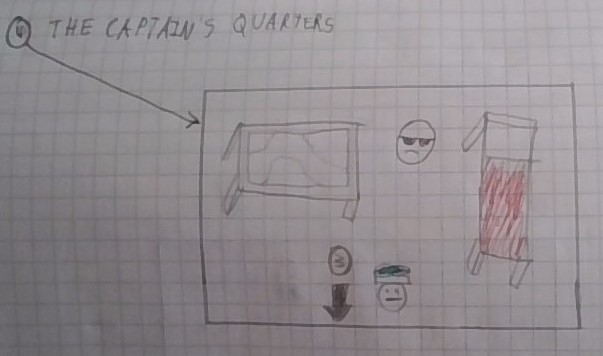 4 THE CAPTAIN'S QUARTERS
3